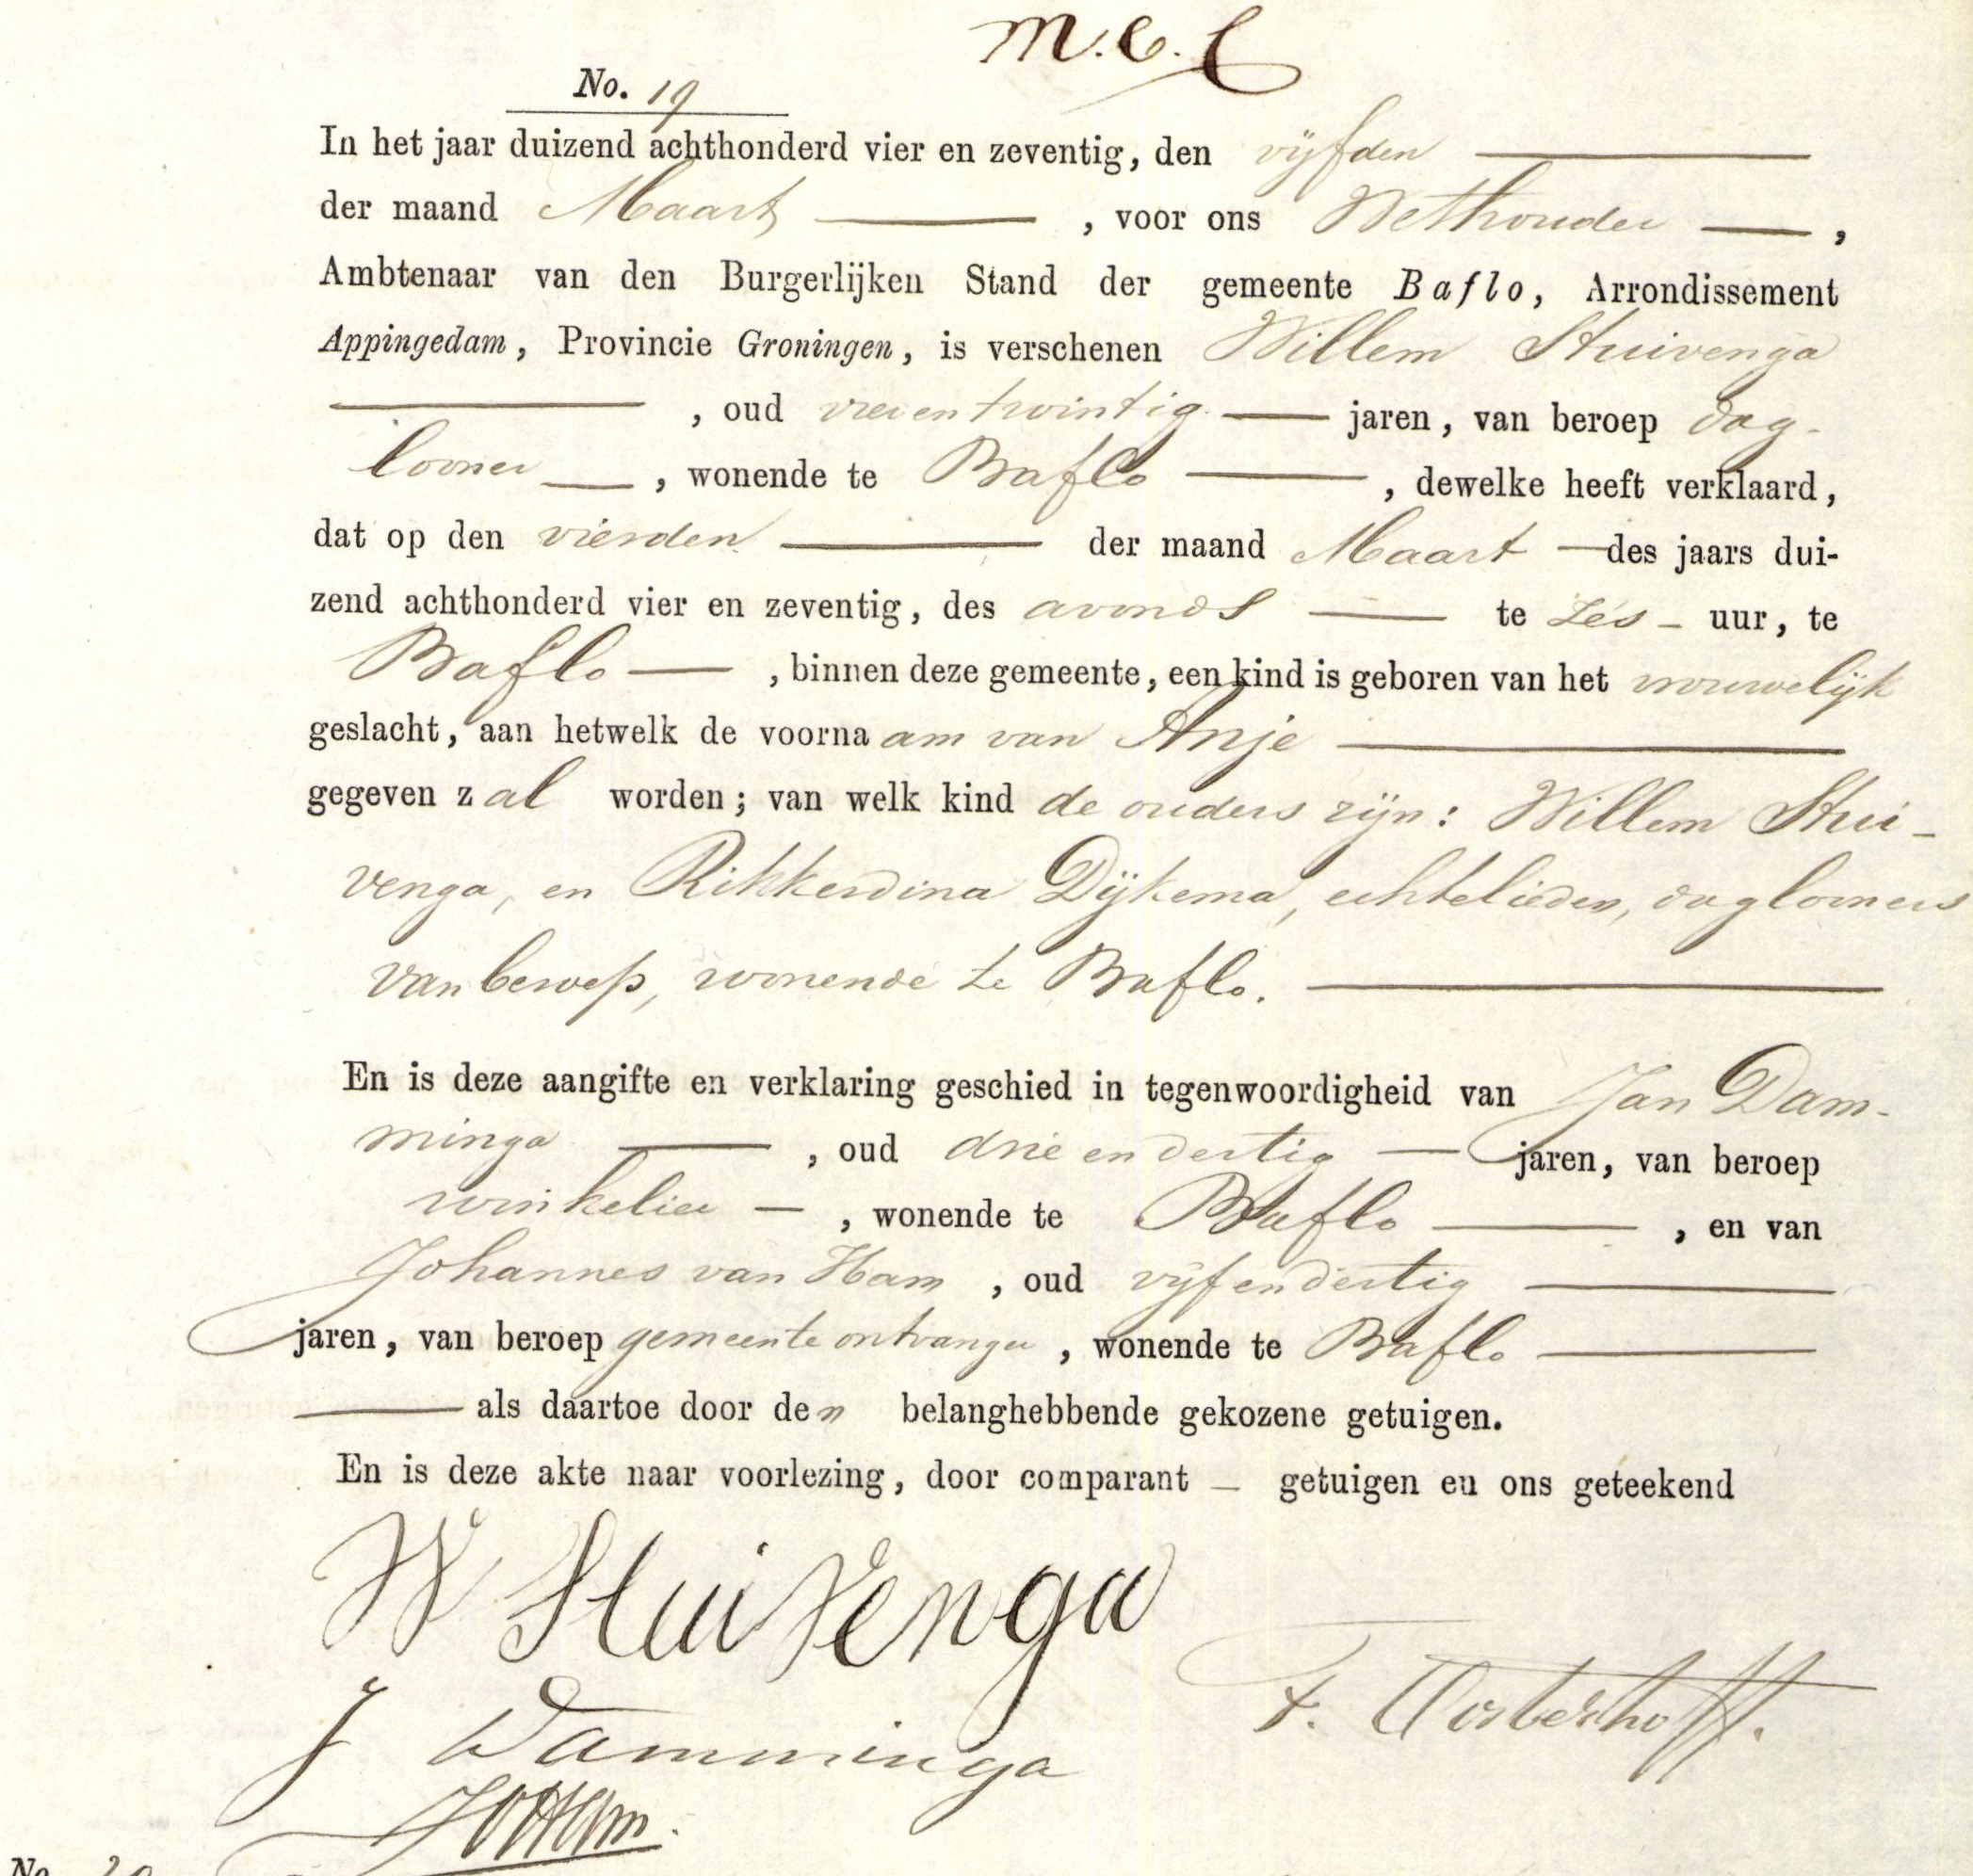 M. C. C
No. 19
In het jaar duizend achthonderd vier en zeventig, den vijfden
der maand Maart, voor ons Wethouder,
Ambtenaar van den Burgerlijken Stand der gemeente Baflo, Arrondissement
Appingedam, Provincie Groningen, is verschenen Willem Stuivenga
, oud vierentwintig jaren, van beroep dag-
looner, wonende te Baflo, dewelke heeft verklaard,
dat op den vierden der maand Maart des jaars dui-
zend achthonderd vier en zeventig, des avonds te zes uur, te
Baflo, binnen deze gemeente, een kind is geboren van het vrouwelijk
geslacht, aan hetwelk de voornaam van Anje
gegeven zal worden; van welk kind de ouders zijn: Willem Stui-
venga, en Rikkerdina Dijkema, echtelieden, dagloners
van beroep, wonende te Baflo.
En is deze aangifte en verklaring geschied in tegenwoordigheid van Jan Dam-
minga, oud drie en dertig jaren, van beroep
winkelier, wonende te Baflo, en van
Johannes van Ham, oud vijfendertig
jaren, van beroep gemeente ontvanger, wonende te Baflo
als daartoe door den belanghebbende gekozene getuigen.
En is deze akte naar voorlezing, door comparant getuigen en ons geteekend
W Stuivenga
F. Oosterhoff.
J Damminga
JvHam.
No. 20